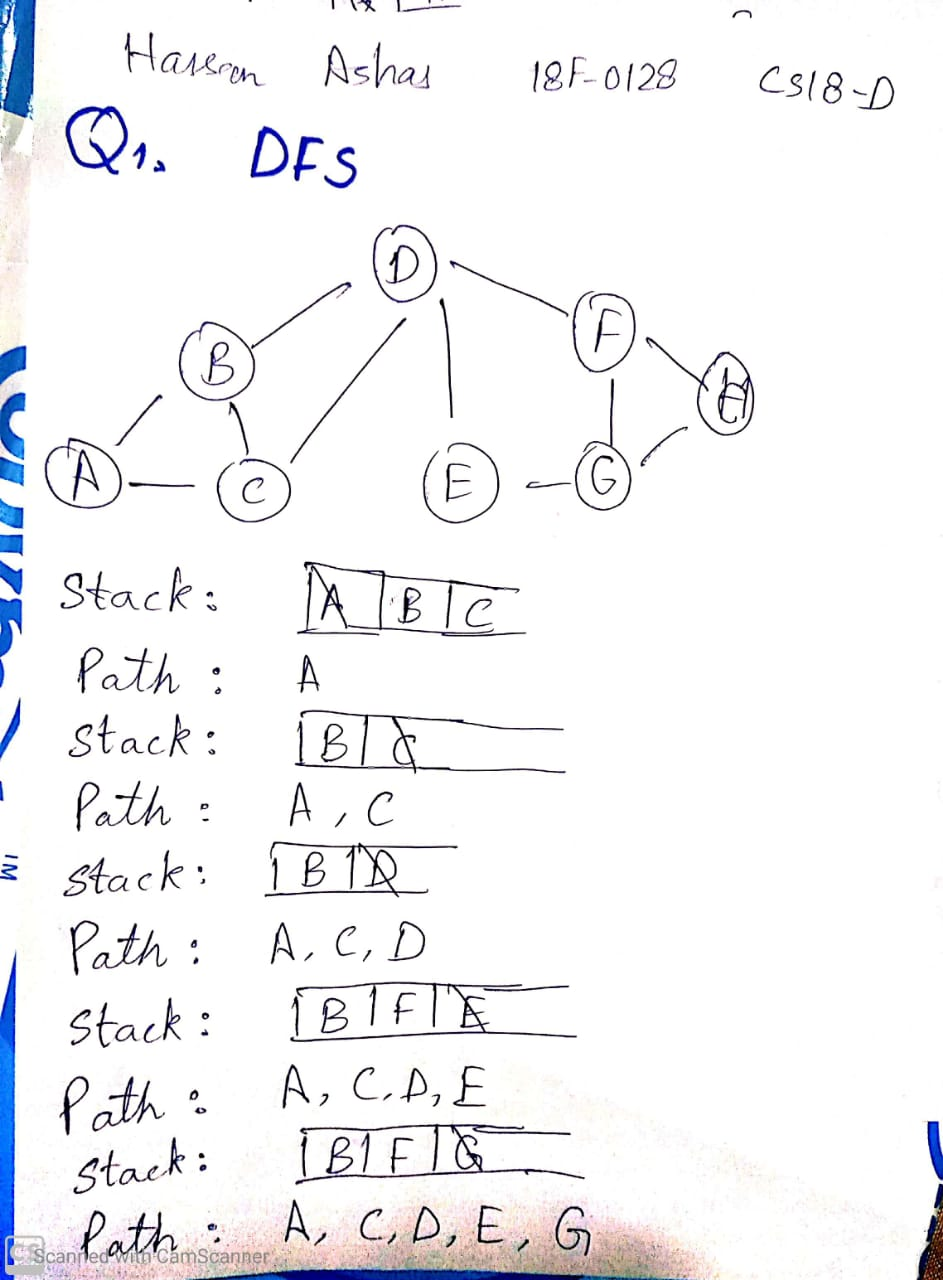 Ashas 18F-0128 CS18-D
Q1. DFS
D
F
B
H
A
C
E
G
Stack: A B C
Path: A
Stack: B C
Path: A, C
Stack: B D
Path: A, C, D
Stack: B F E
Path: A, C, D, E
Stack: B F G
Path: A, C, D, E, G
CS Scanned with CamScanner